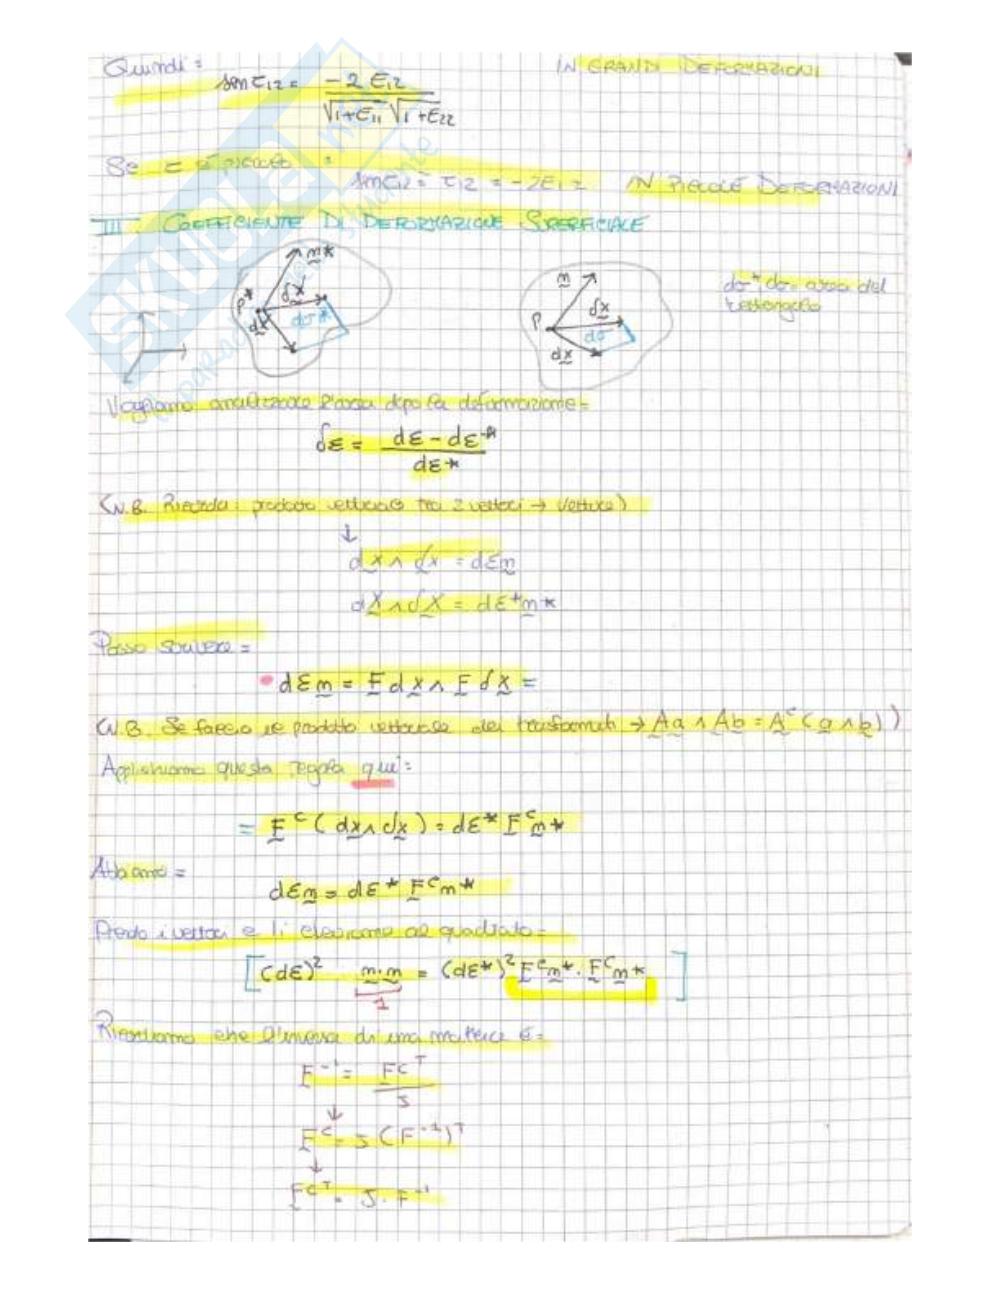 Quindi:
sen τ12 = -2 E12 / √1+E11 √1+E22 IN GRANDI DEFORMAZIONI
Se τ è piccolo:
sen τ12 = τ12 = -2E12 IN PICCOLE DEFORMAZIONI
III COEFFICIENTE DI DEFORMAZIONE SUPERFICIALE
n* P* δX dX dσ*
n P δx dσ dx
dσ*, dσ = area del
rettangolo
Vogliamo analizzare l'area dopo la deformazione=
δε = dε - dε* / dε*
(N.B. Ricorda: prodotto vettoriale tra 2 vettori → vettore)
↓
dx ∧ δx = dε n
dX ∧ δX = dε* n*
Posso scrivere =
• dε n = F dX ∧ F δX =
(N.B. Se faccio il prodotto vettoriale dei trasformati → Aa ∧ Ab = A^C (a ∧ b))
Applichiamo questa regola qui:
= F^C (dx ∧ δx) = dε* F^C n*
Abbiamo =
dε n = dε* F^C n*
Prendo i vettori e li eleviamo al quadrato =
[(dε)² n·n = (dε*)² F^C n* · F^C n*]
1
Ricordiamo che l'inversa di una matrice è =
F^-1 = F^C^T / J
↓
F^C = J (F^-1)^T
↓
F^C^T = J · F^-1
SKUOLA.net